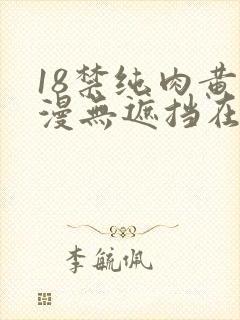 18禁纯肉黄
漫無遮挡在
李毓佩